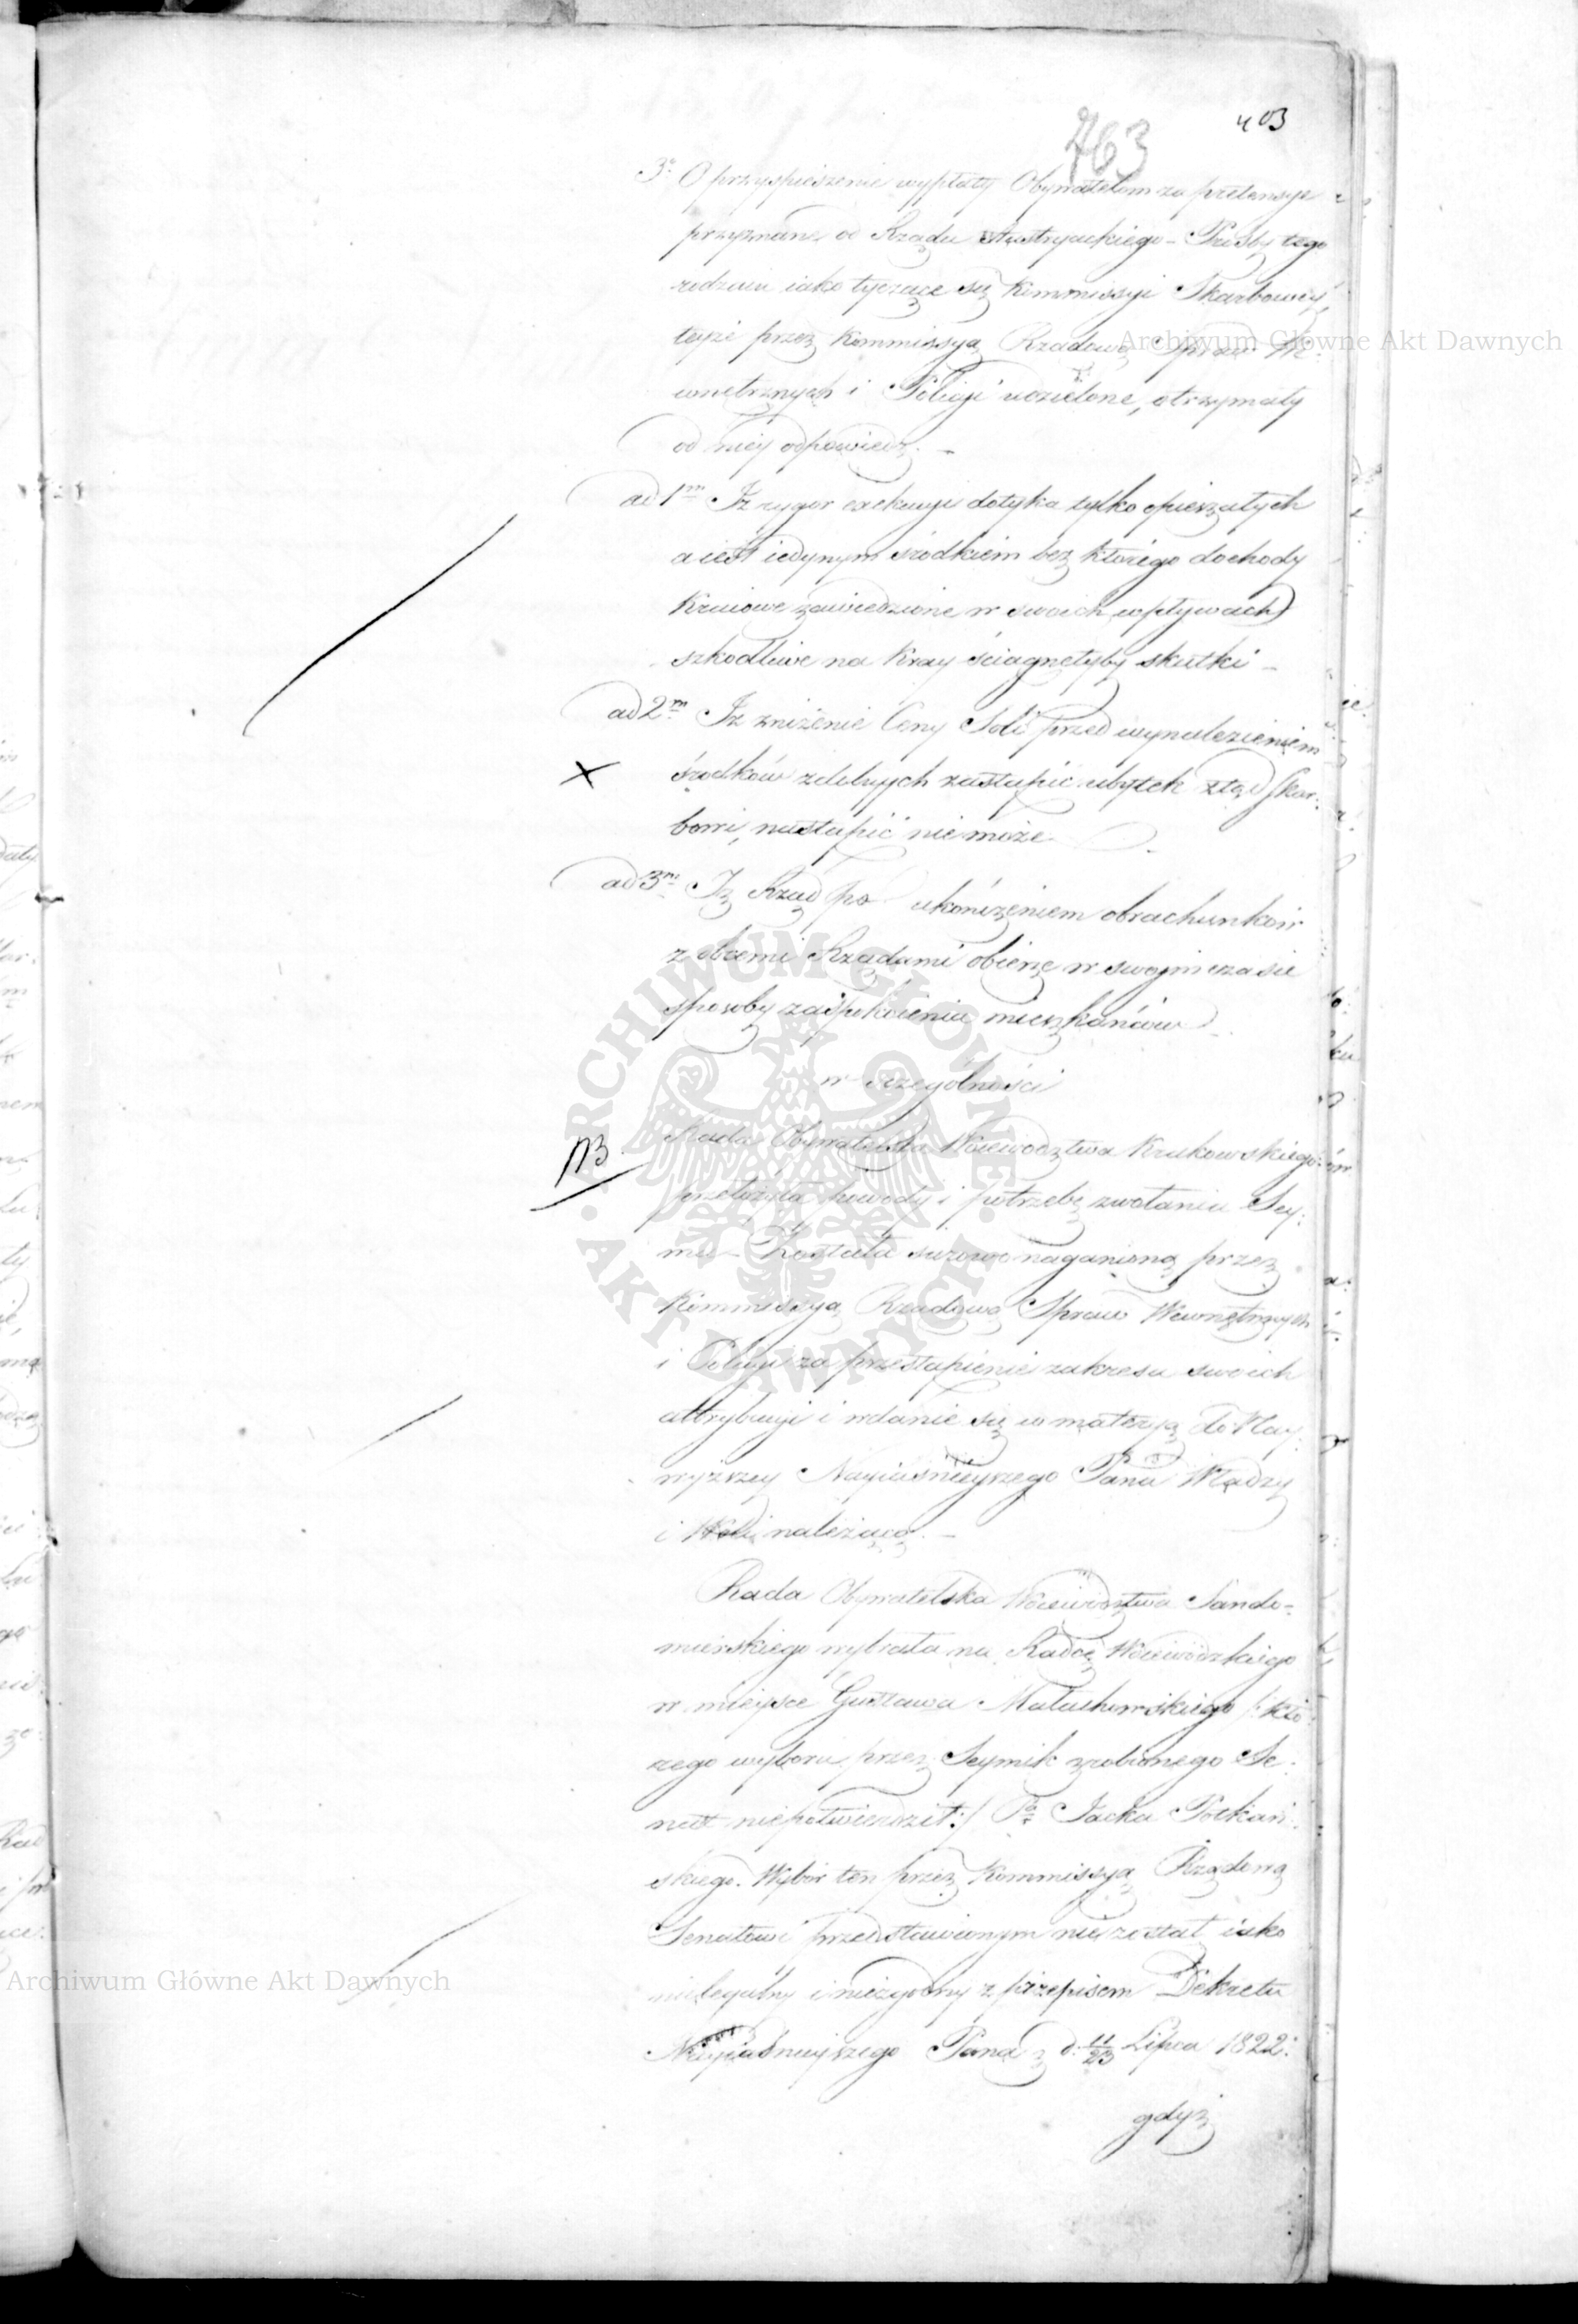 403
763
3° O przyspieszenie wypłaty Obywatelom za pretensye
przyznane od Rządu Austryackiego – Prośby tego
rodzaiu iako tyczące się Kommissyi Skarbowey,
teyże przez Kommissyą Rządową Spraw We:
wnętrznych i Policyi udzielone, otrzymały
od niey odpowiedz. –
ad 1m Iż rygor exekucyi dotyka tylko opieszałych
a iest iedynym środkiem bez którego dochody
Kraiowe zawiedzione w swoich wpływach
szkodliwe na Kray ściągnęłyby skutki –
ad 2m Iż zniżenie Ceny Soli przed wynalezieniem
X środków zdolnych zastąpić ubytek ztąd Skar:
bowi, nastąpić nie może
ad 3m Iż Rząd po ukończeniem obrachunków
z obcemi Rządami obierze w swoim czasie
sposoby zaspokoienia mieszkańców
w szczególności
NB. Rada Obywatelska Województwa Krakowskiego
przełożyła powody i potrzebę zwołania Sey:
mu – Została surowo naganioną przez
Kommissyą Rządową Spraw Wewnętrznych
i Policyi za przestąpienie zakresu swoich
attrybucyi i wdanie się w materyą do Nay:
wyższey Nayiaśnieyszego Pana Władzy
i Woli należącą. –
Rada Obywatelska Województwa Sando-
mierskiego wybrała na Radcę Wojewódzkiego
w mieysce Gustawa Małachowskiego /: któ:
rego wyboru przez Seymik zrobionego Se:
nat niepotwierdził :/ Pa Jacka
skiego. Wybór ten przez Kommissyą Rządową
Senatowi przedstawionym nie został iako
nielegalny i niezgodny z przepisem Dekretu
Nayiaśnieyszego Pana z d. 11/23 Lipca 1822.
gdyż
Archiwum Główne Akt Dawnych
ARCHIWUM GŁÓWNE AKT DAWNYCH
Archiwum Główne Akt Dawnych